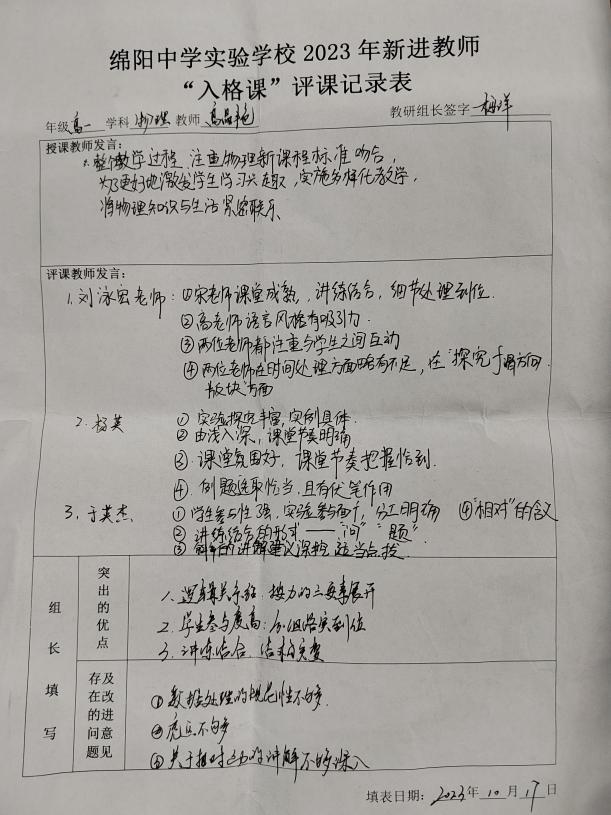 绵阳中学实验学校 2023 年新进教师
“入格课”评课记录表
年级 高一 学科 物理 教师 高晶艳 教研组长签字 杨洋
授课教师发言：
整个教学过程 注重物理新课程标准吻合，
为了更好地激发学生学习兴趣，实施多样化教学，
将物理知识与生活紧密联系
评课教师发言：
1. 刘泳宏老师：①宋老师课堂成熟，讲练结合，细节处理到位.
②高老师语言风格有吸引力.
③两位老师都注重与学生之间互动
④两位老师在时间处理方面略有不足，在“探究f滑方向”
版块方面
2. 杨英 ①实验探究丰富，实例具体.
②由浅入深，课堂节奏明确
③. 课堂氛围好，课堂节奏把握恰到.
④. 例题选取恰当，且有伏笔作用
3. 于英杰 ①学生参与性强，实验参与 分工明确 ④“相对”的含义
②讲练结合的形式——“问”“题”
③ 的讲解建议深挖，适当点拨.
组长填写
突出的优点
1. 逻辑关系 按力的三要素展开
2. 学生参与度高：分组落实到位
3. 讲练结合，结
存在的问题及改进意见
①数据处理的规范性不够.
② 不够
③关于相对运动的讲解不够深入
填表日期：2023 年 10 月 17 日